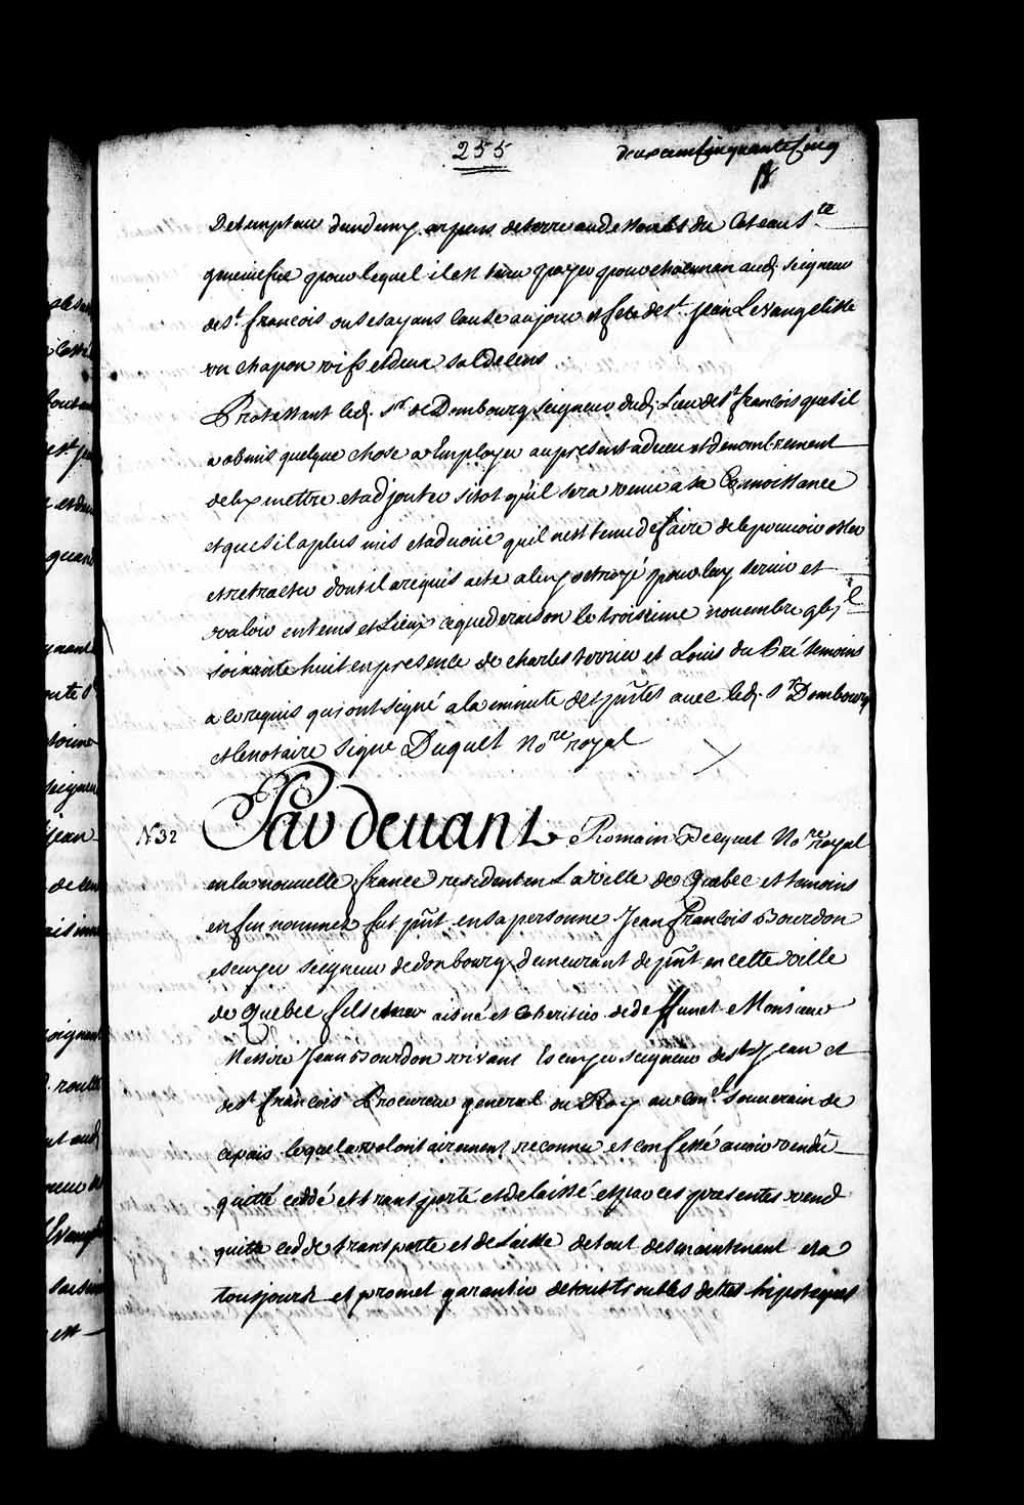 255
deux cent cinquante cinq
De temps ou d'un demy arpens de terre audessous du Coteau Ste
genevieve pour lequel il est tenu payer pour chacun an audj. seigneur
de St. francois ou ses ayans cause au jour et feste de St. Jean Levangeliste
un chapon vif et deux sol de cens
Protestant ledj. Sr. de Dombourg seigneur dudj. Lieu de St. francois que s'il
a obmis quelque chose a Employer au present adveu et denombrement
de le y mettre et adjouter sitot qu'il sera venu a sa Connoissance
et que s'il a plus mis et advoüé qu'il n'est tenu de faire de le pouvoir oster
et retracter dont il a requis acte a luy octroyé pour luy servir et
valoir en tems et Lieux ce que de raison le troisieme novembre gbj. c
soixante huit en presence de charles terrier et Louis du Pré temoins
a ce requis qui ont signé a la minute des pñtes avec ledj. Sr. Dombourg
et le notaire signe Duquet Nore. royal
N 32
Par devant Romain Becquet Nore. royal
en la nouvelle france resident en La ville de Quebec et temoins
en fin nommez fut pñt en sa personne Jean francois Bourdon
escuyer seigneur de donbourg demeurant de pñt en cette ville
de Quebec fils aisné et heritier de deffunct Monsieur
Messire Jean Bourdon vivant Escuyer seigneur de St. Jean et
de St. francois Procureur general du Roy au Conel. souverain de
ce païs lequel a volontairement reconnu et confessé avoir vendu
quitté ceddé et transporté et delaissé et par ces presentes vend
quitte cedde transporte et delaisse de tout des maintenant et a
toujours et promet garantir de tous troubles dettes hipoteques